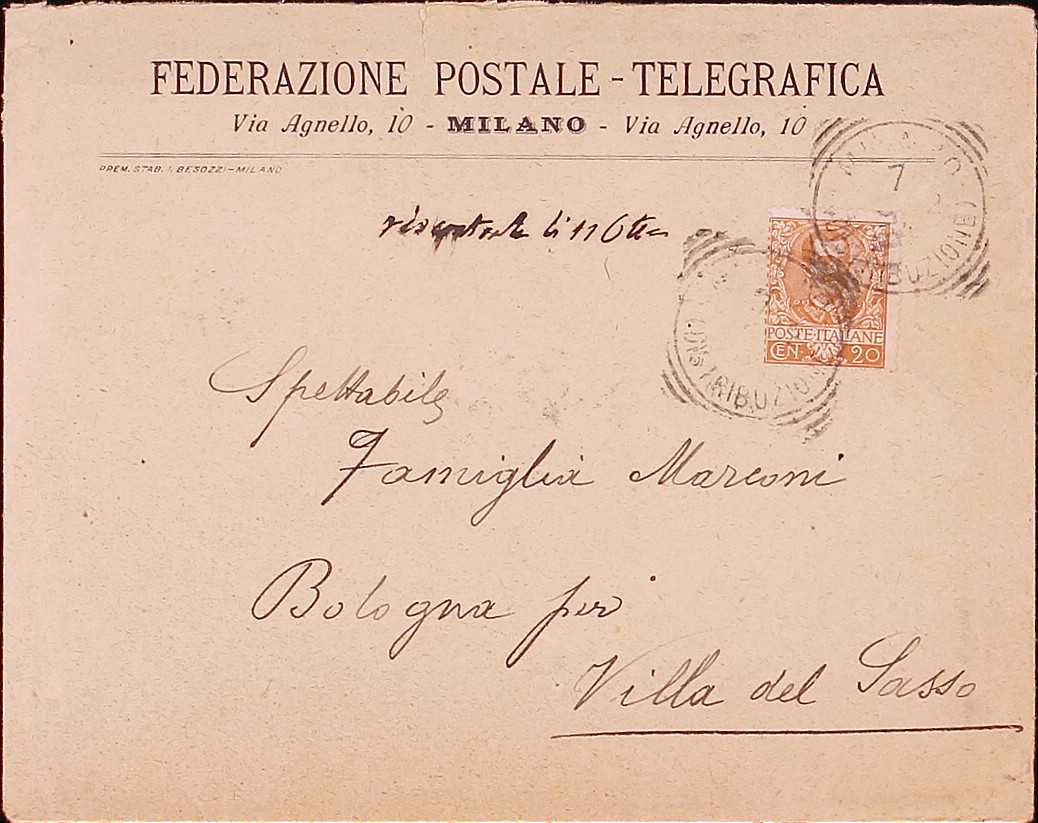 FEDERAZIONE POSTALE-TELEGRAFICA
Via Agnello, 10 - MILANO - Via Agnello, 10
PREM. STAB. I. BESOZZI-MILANO
MILANO
7
DISTRIBUZIONE
POSTE·ITALIANE
CEN. 20
Spettabile
Famiglia Marconi
Bologna per
Villa del Sasso